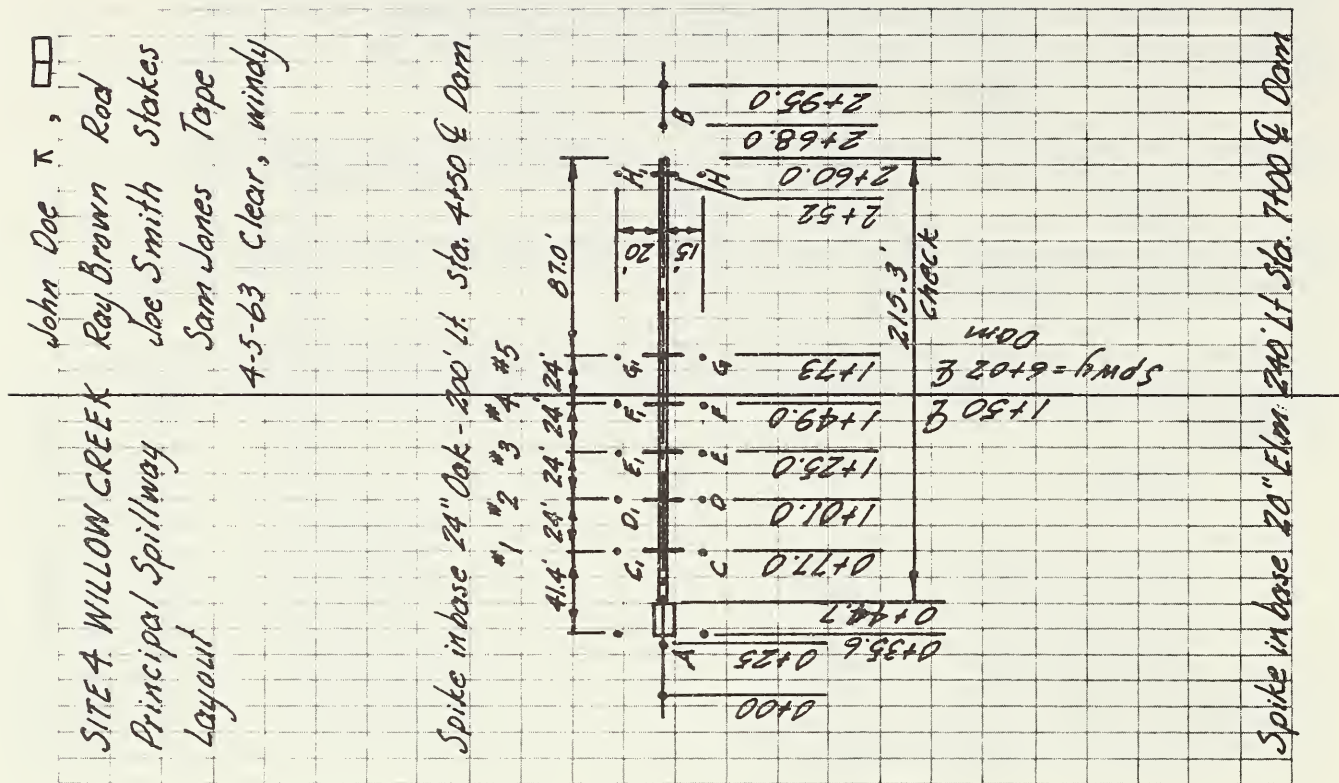 SITE 4 WILLOW CREEK
Principal Spillway
Layout
John Doe ⊼,
Ray Brown Rod
Joe Smith Stakes
Sam Jones Tape
4-5-63 Clear, windy
Spike in base 24" Oak - 200' Lt. Sta. 4+50 ℄ Dam
#1 #2 #3 #4 #5
41.4' 24' 24' 24' 24' 87.0'
C₁ D₁ E₁ F₁ G₁ H₁
20'
15'
A C D E F G H B
0+00
0+25
0+35.6
0+44.7
0+77.0
1+01.0
1+25.0
1+49.0
1+73
2+52
2+60.0
2+68.0
2+95.0
215.3'
check
1+50 ℄
Spwy = 6+02 ℄
Dam
Spike in base 20" Elm 240' Lt Sta. 7+00 ℄ Dam